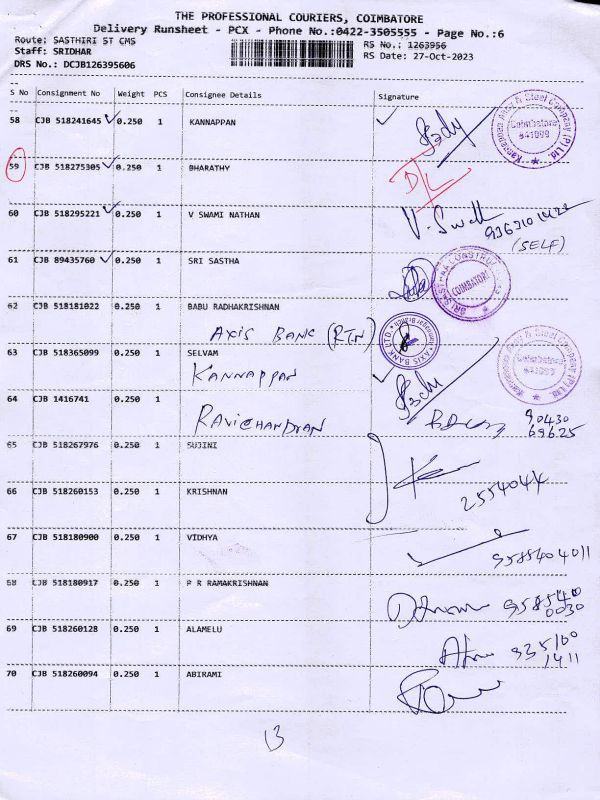 THE PROFESSIONAL COURIERS, COIMBATORE
Delivery Runsheet - PCX - Phone No.:0422-3505555 - Page No.:6
Route: SASTHIRI ST CMS
RS No.: 1263956
Staff: SRIDHAR
RS Date: 27-Oct-2023
DRS No.: DCJB126395606
S No Consignment No Weight PCS Consignee Details Signature
58 CJB 518241645 0.250 1 KANNAPPAN
Coimbatore
641009
59 CJB 518275305 0.250 1 BHARATHY
D/L
60 CJB 518295221 0.250 1 V SWAMI NATHAN
(SELF)
61 CJB 89435760 0.250 1 SRI SASTHA
COIMBATORE
62 CJB 518181022 0.250 1 BABU RADHAKRISHNAN
AXIS BANK (RTN)
AXIS BANK LTD.
63 CJB 518365099 0.250 1 SELVAM
KANNAPPAN
64 CJB 1416741 0.250 1
RAVICHANDRAN
90430
69625
65 CJB 518267976 0.250 1 SUJINI
66 CJB 518260153 0.250 1 KRISHNAN
67 CJB 518180900 0.250 1 VIDHYA
9585404011
68 CJB 518180917 0.250 1 P R RAMAKRISHNAN
958540
0030
69 CJB 518260128 0.250 1 ALAMELU
70 CJB 518260094 0.250 1 ABIRAMI
13